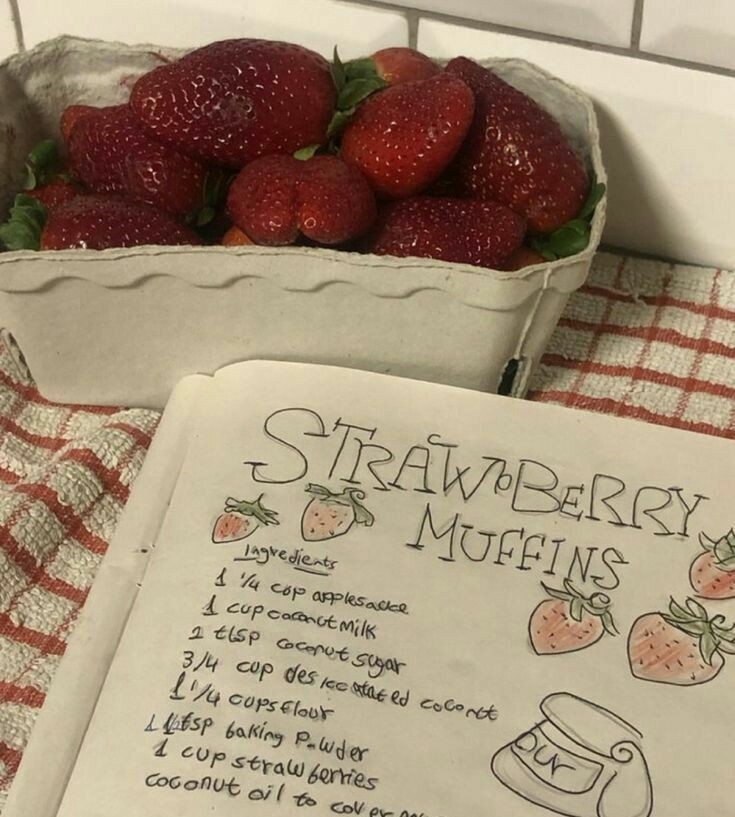 STRAWBERRY
MUFFINS
Ingredients
1 1/4 cup applesauce
1 cup coconut milk
2 tbsp coconut sugar
3/4 cup desiccated coconut
1 1/4 cups flour
tsp baking powder
1 cup strawberries
coconut oil to cover
our